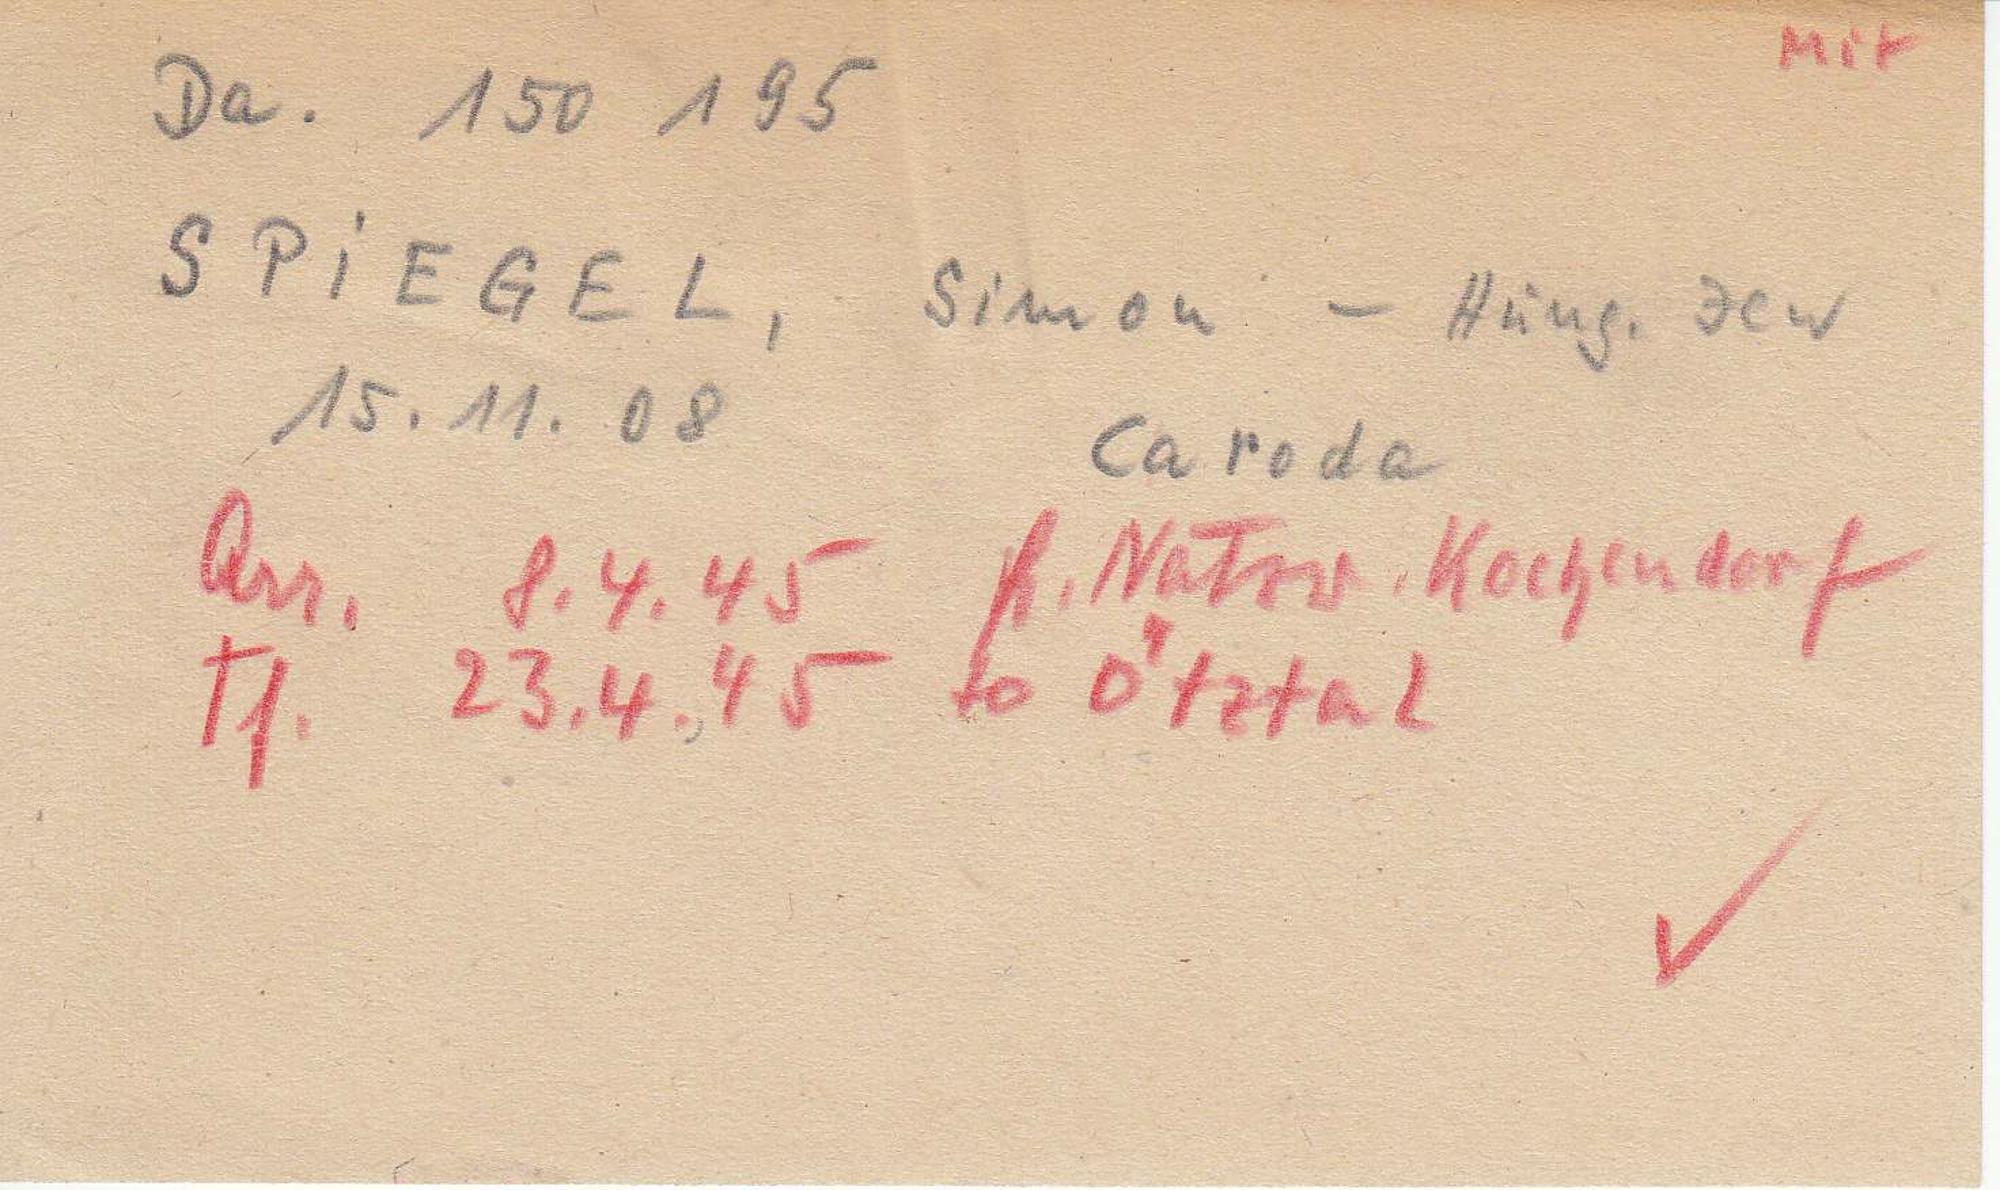 Mit
Da. 150 195
SPiEGEL, Simon - Hung. Jew
15.11.08 Caroda
Arr. 8.4.45 fr. Natzw. Kochendorf
Tf. 23.4.45 to Ötztal